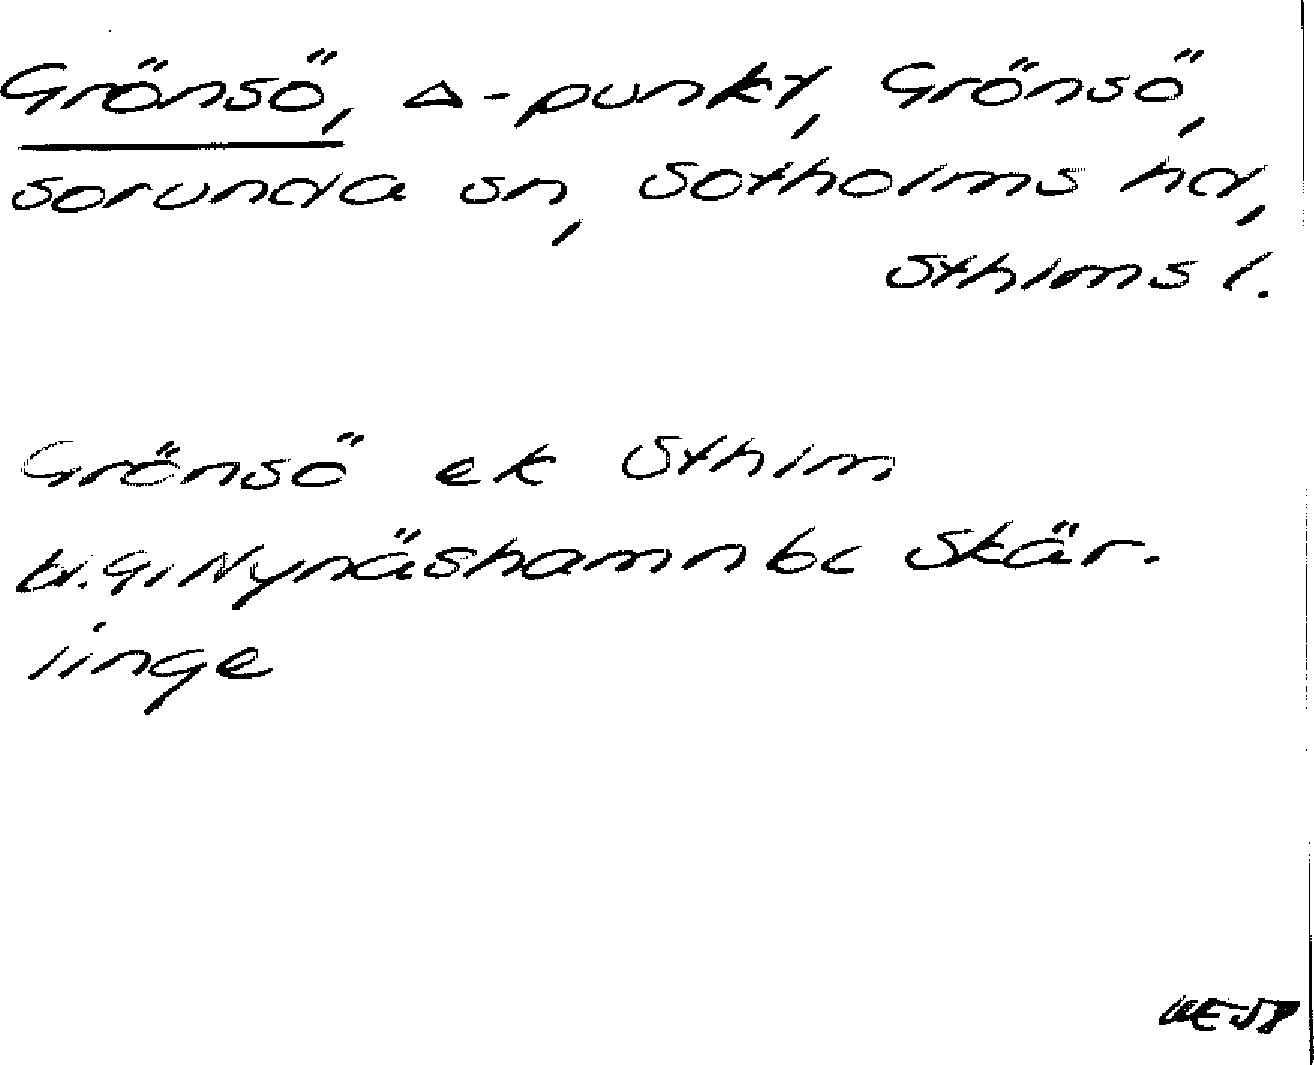 Grönsö, △-punkt, Grönsö,
Sorunda sn, Sotholms hd,
Sthlms l.
Grönsö ek Sthlm
Nynäshamn bl Skär.
linge